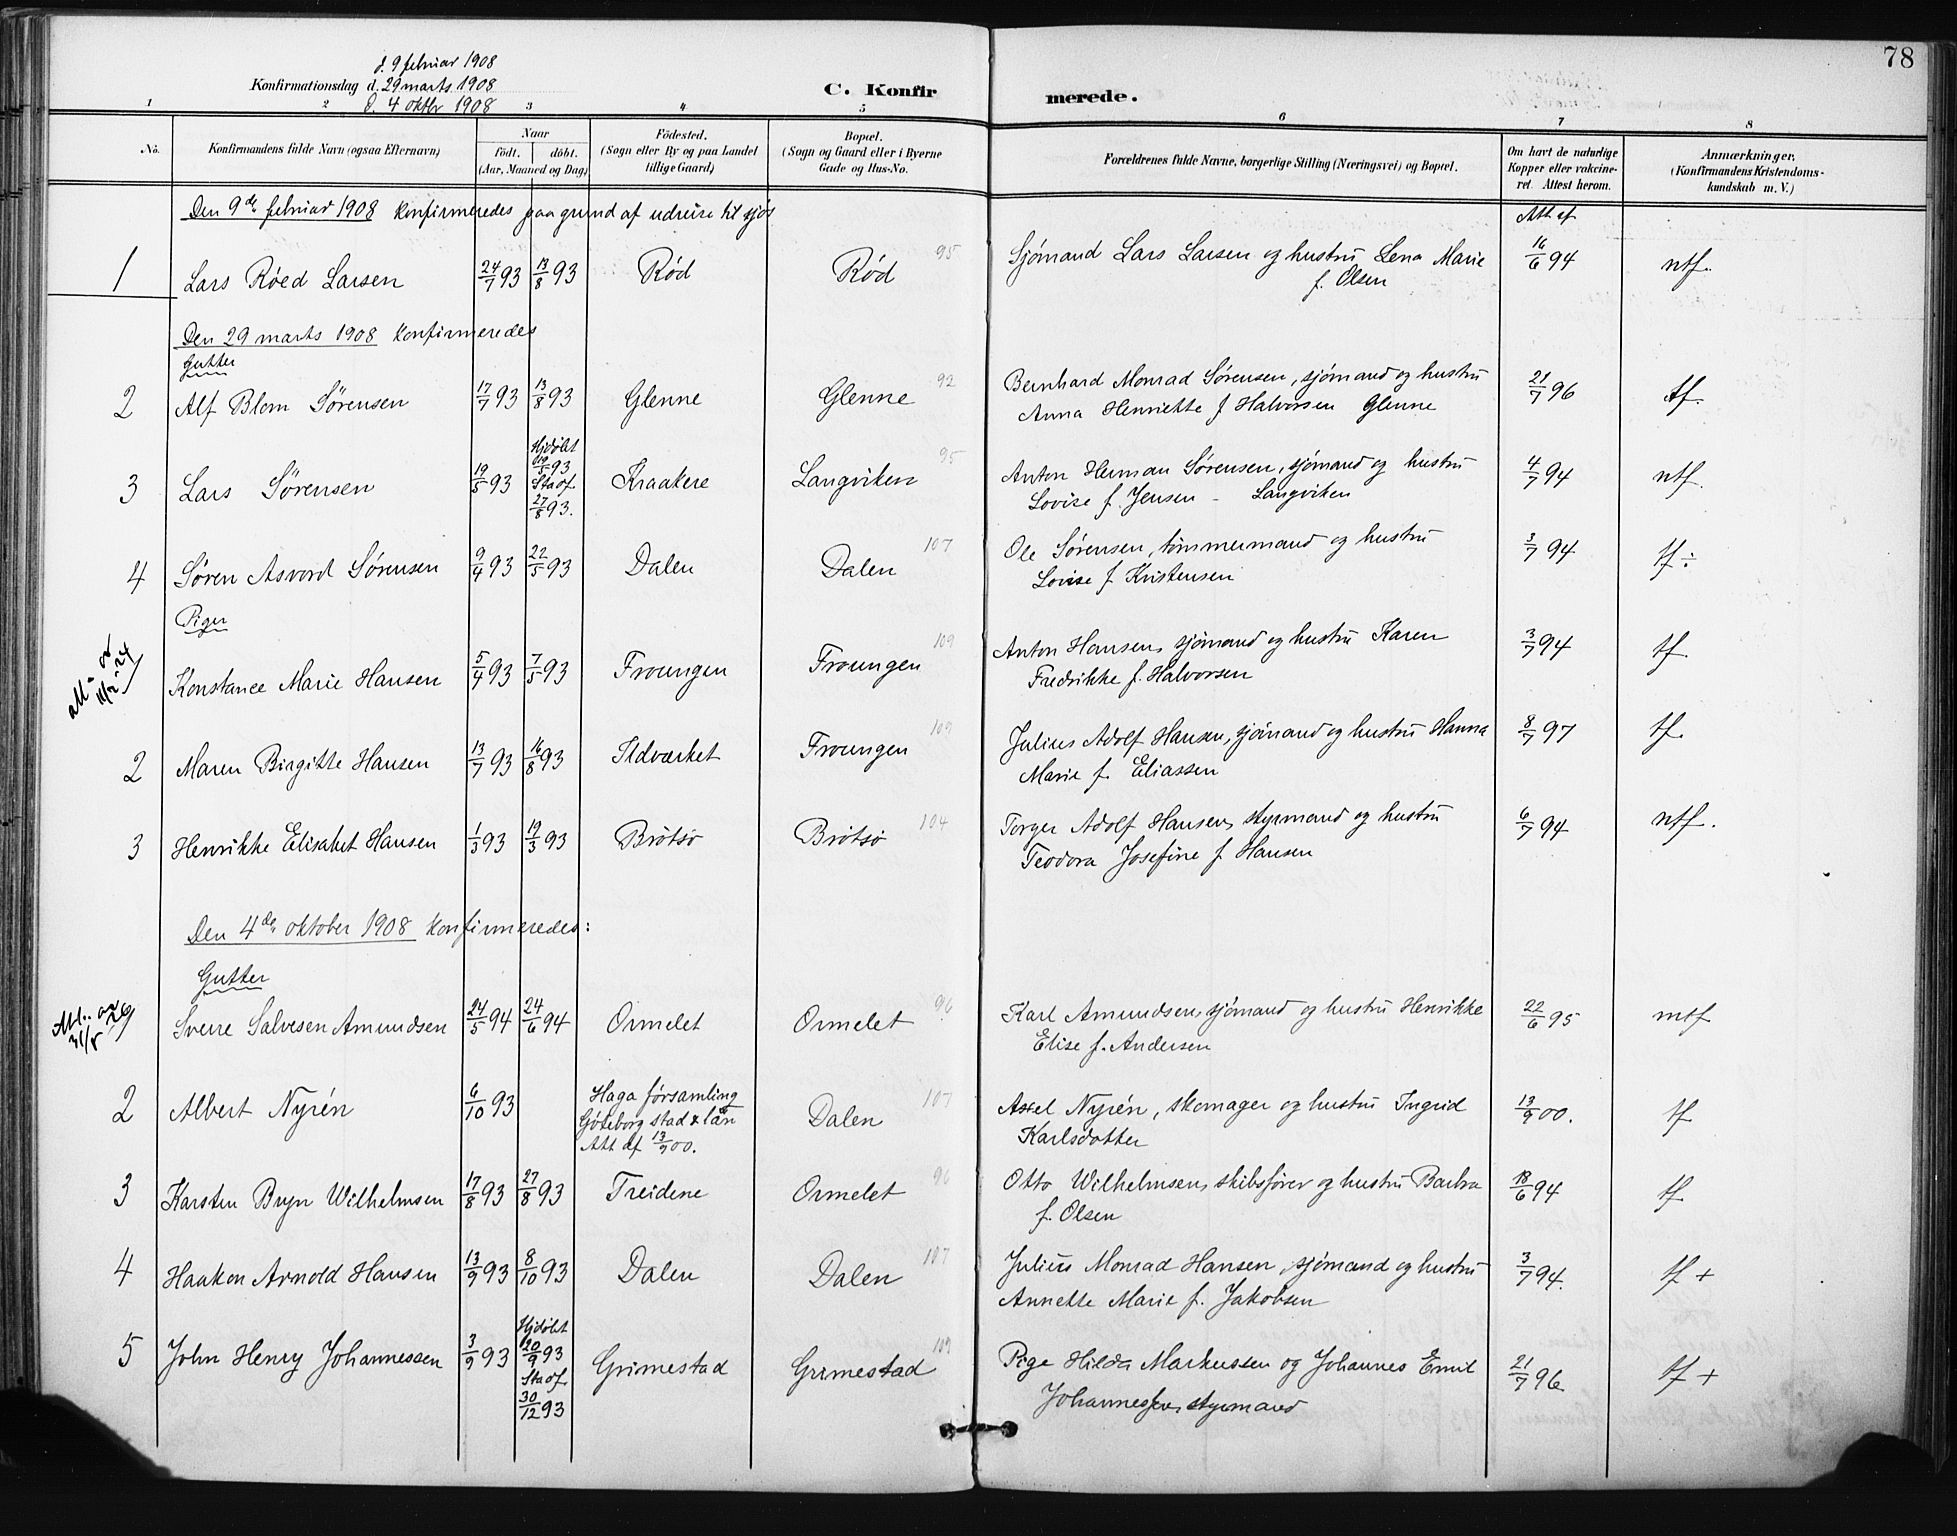 78
d. 9 februar 1908
Konfirmationsdag d. 29 marts 1908
d. 4 oktbr 1908
C. Konfirmerede.
1 2 3 4 5 6 7 8
No.
Konfirmandens fulde Navn (ogsaa Efternavn)
Naar
födt. döbt.
(Aar, Maaned og Dag)
Födested.
(Sogn eller By og paa Landet
tillige Gaard)
Bopæl.
(Sogn og Gaard eller i Byerne
Gade og Hus-No.
Forældrenes fulde Navne, borgerlige Stilling (Næringsvei) og Bopæl.
Om havt de naturlige
Kopper eller vakcine-
ret. Attest herom.
Anmærkninger.
(Konfirmandens Kristendoms-
kundskab m. V.)
Den 9de februar 1908 konfirmeredes paa grund af udreise til sjøs
Att af
1 Lars Røed Larsen 24/7 93 13/8 93 Rød Rød 95 Sjømand Lars Larsen og hustru Lena Marie 16/6 94 ntf.
f. Olsen
Den 29 marts 1908 konfirmeredes
Gutter
2 Alf Blom Sørensen 17/7 93 13/8 93 Glenne Glenne 92 Bernhard Monrad Sørensen, sjømand og hustru 21/7 96 tf.
Anna Henriette f Halvorsen Glenne
3 Lars Sørensen 19/5 93 Hjdøbt 19/5 93 Stadf. 27/8 93. Kraakere Langviken 95 Anton Herman Sørensen, sjømand og hustru 4/7 94 ntf.
Lovise f. Jensen - Langviken
4 Søren Asvord Sørensen 9/4 93 22/5 93 Dalen Dalen 107 Ole Sørensen, tømmermand og hustru 3/7 94 tf ÷
Lovise f. Kristensen
Piger
11/2 24
Konstance Marie Hansen 5/4 93 7/5 93 Froungen Froungen 109 Anton Hansen, sjømand og hustru Karen 3/7 94 tf.
Fredrikke f. Halvorsen
2 Maren Birgitte Hansen 13/7 93 16/8 93 Ildværket Froungen 109 Julius Adolf Hansen, sjømand og hustru Hanna 8/7 97 tf.
Marie f. Eliassen
3 Henrikke Elisabet Hansen 1/3 93 19/3 93 Brøtsø Brøtsø 104 Torger Adolf Hansen, styrmand og hustru 6/7 94 ntf.
Teodora Josefine f. Hansen
Den 4de oktober 1908 konfirmeredes:
Gutter
31/5 29
Sverre Salvesen Amundsen 24/5 94 24/6 94 Ormelet Ormelet 96 Karl Amundsen, sjømand og hustru Henrikke 22/6 95 mtf
Elise f. Andersen
2 Albert Nyrén 6/10 93 Haga församling Göteborg stad & län Att af 13/9 00. Dalen 107 Axel Nyrén, skomager og hustru Ingrid 13/9 00. tf
Karlsdotter
3 Karsten Bryn Wilhelmsen 17/8 93 27/8 93 Treidene Ormelet 96 Otto Wilhelmsen, skibsfører og hustru Barbra 18/6 94 tf.
f. Olsen
4 Haakon Arnold Hansen 13/9 93 8/10 93 Dalen Dalen 107 Julius Monrad Hansen, sjømand og hustru 3/7 94. tf +
Annette Marie f. Jakobsen
5 John Henry Johannessen 3/9 93 Hjdøbt 20/9 93 Stadf. 30/12 93 Grimestad Grimestad 109 Pige Hilda Markussen og Johannes Emil 21/7 96 tf +
Johannessen, styrmand